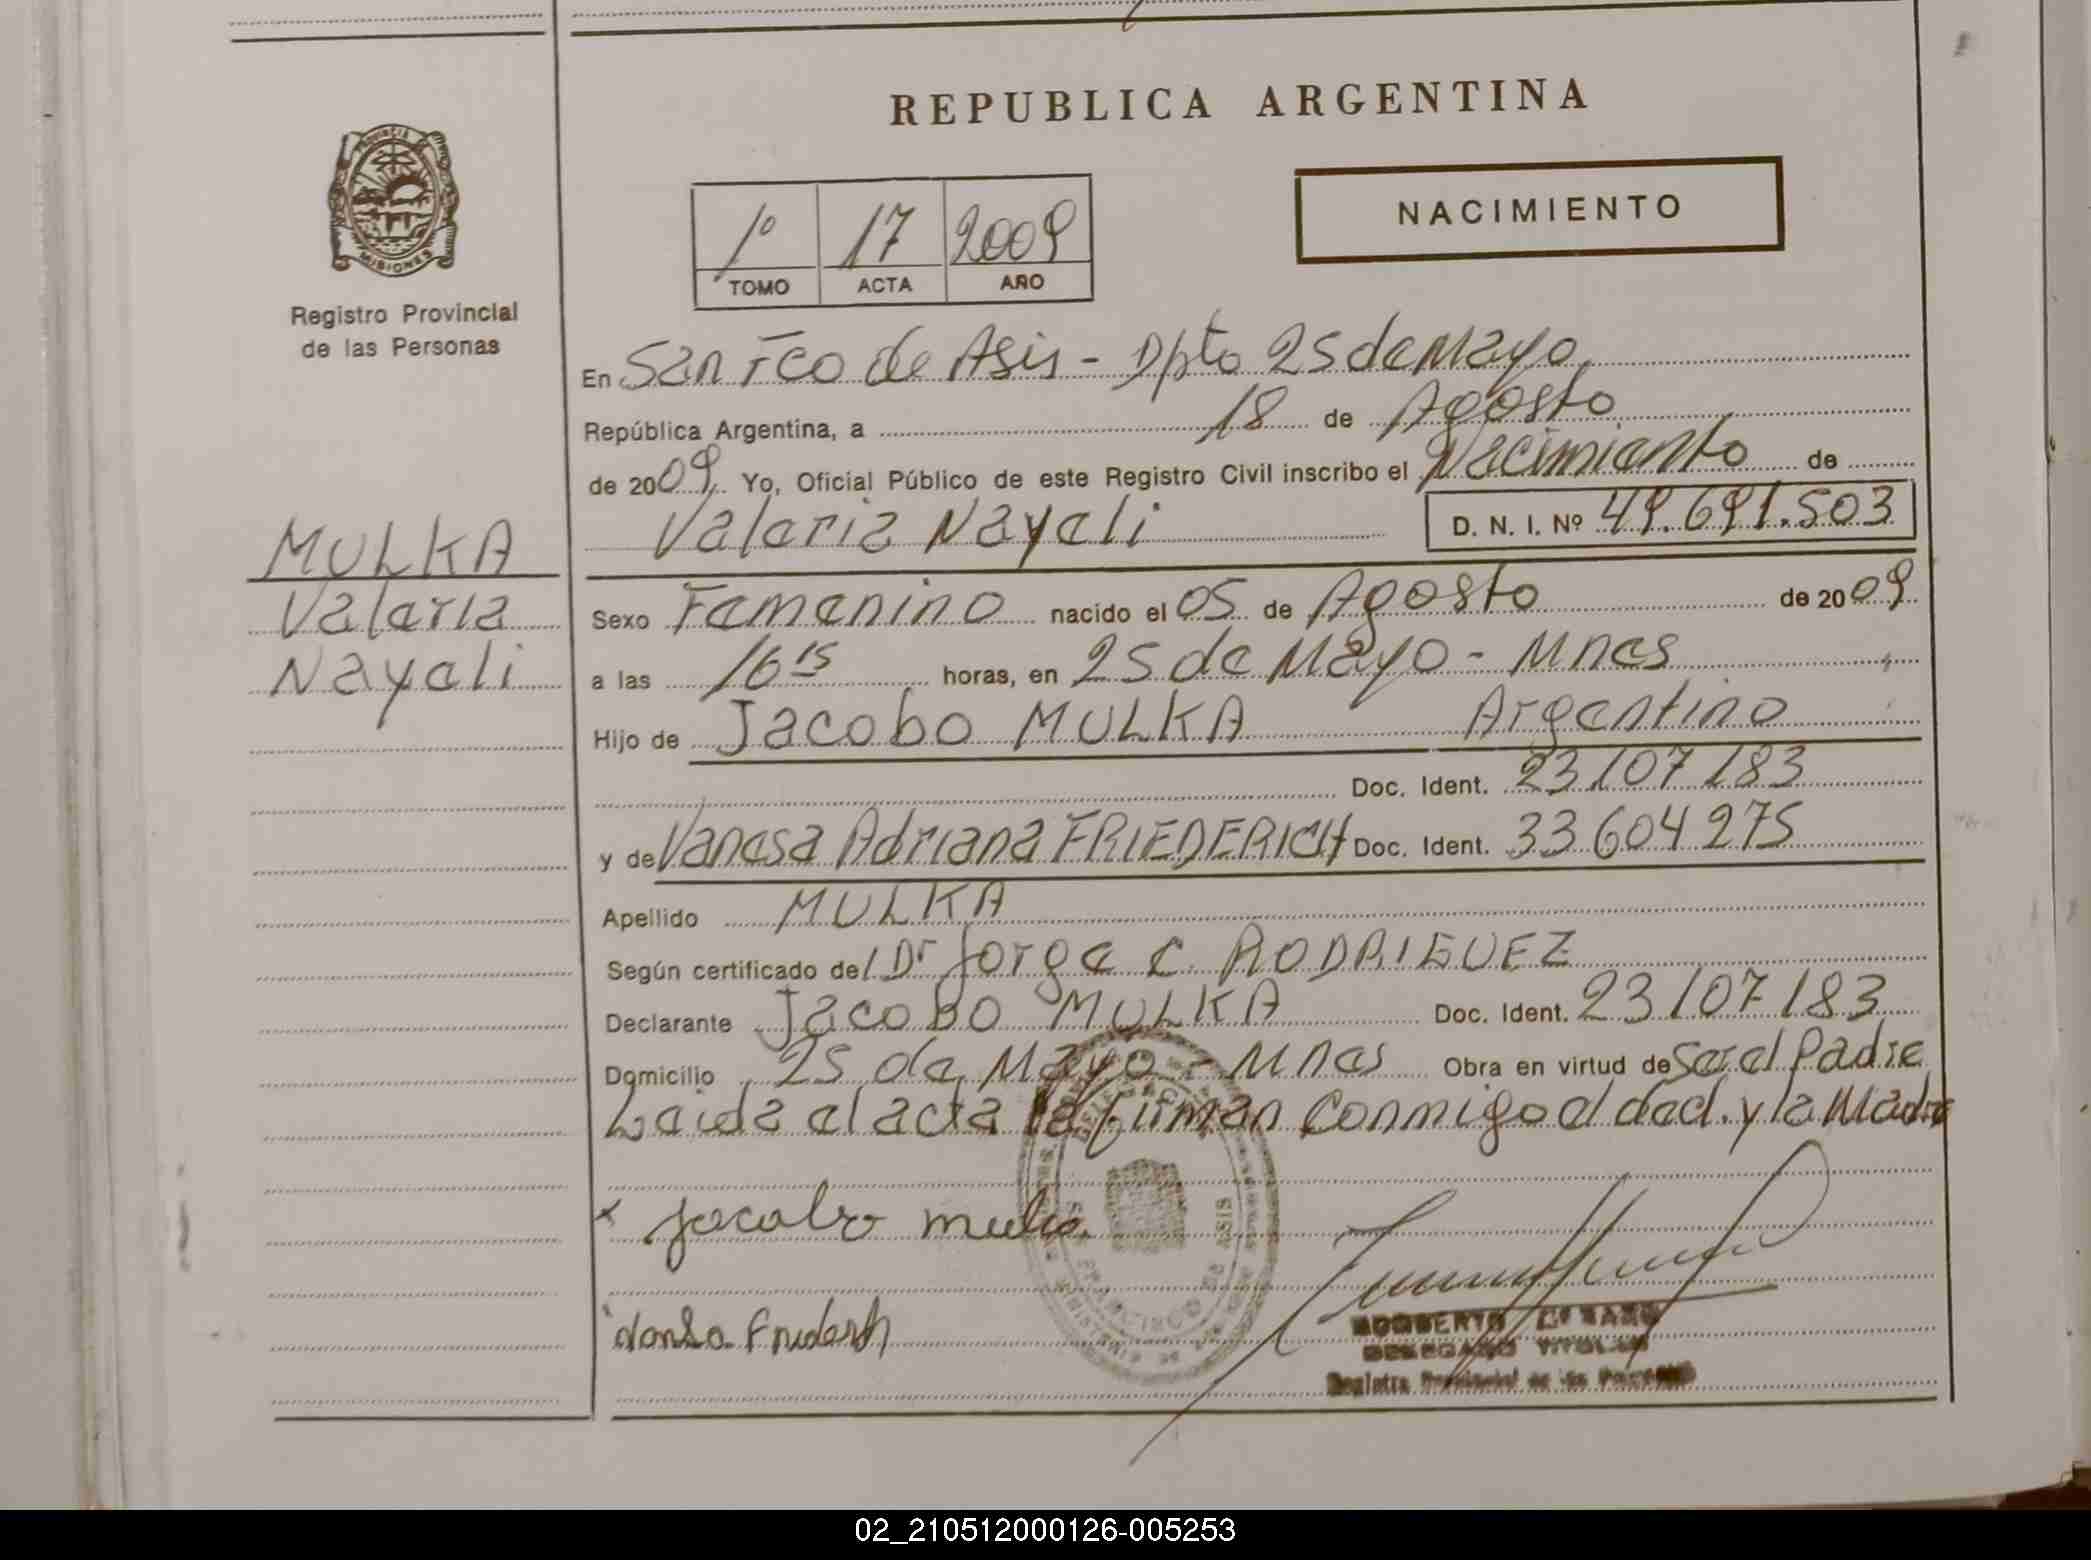 REPUBLICA ARGENTINA
PROVINCIA
MISIONES
Registro Provincial
de las Personas
1º 17 2009
TOMO ACTA AÑO
NACIMIENTO
En San Fco de Asis - Dpto 25 de Mayo
República Argentina, a 18 de Agosto
de 2009. Yo, Oficial Público de este Registro Civil inscribo el Nacimiento de
Valeria Nayeli D. N. I. Nº 49.691.503
MULKA
Valeria
Nayeli
Sexo Femenino nacido el 05 de Agosto de 2009
a las 16 15 horas, en 25 de Mayo - Mnes
Hijo de Jacobo MULKA Argentino
Doc. Ident. 23107183
y de Vanesa Adriana FRIEDERICH Doc. Ident. 33604275
Apellido MULKA
Según certificado del Dr Jorge C. RODRIGUEZ
Declarante Jacobo MULKA Doc. Ident. 23107183
Domicilio 25 de Mayo - Mnes Obra en virtud de Ser el Padre
Leida el acta la firman conmigo el decl. y la Madre
x jacobo mulka
SAN FRANCISCO DE ASIS
DELEGADO TITULAR
Registro Provincial de las Personas
02_210512000126-005253